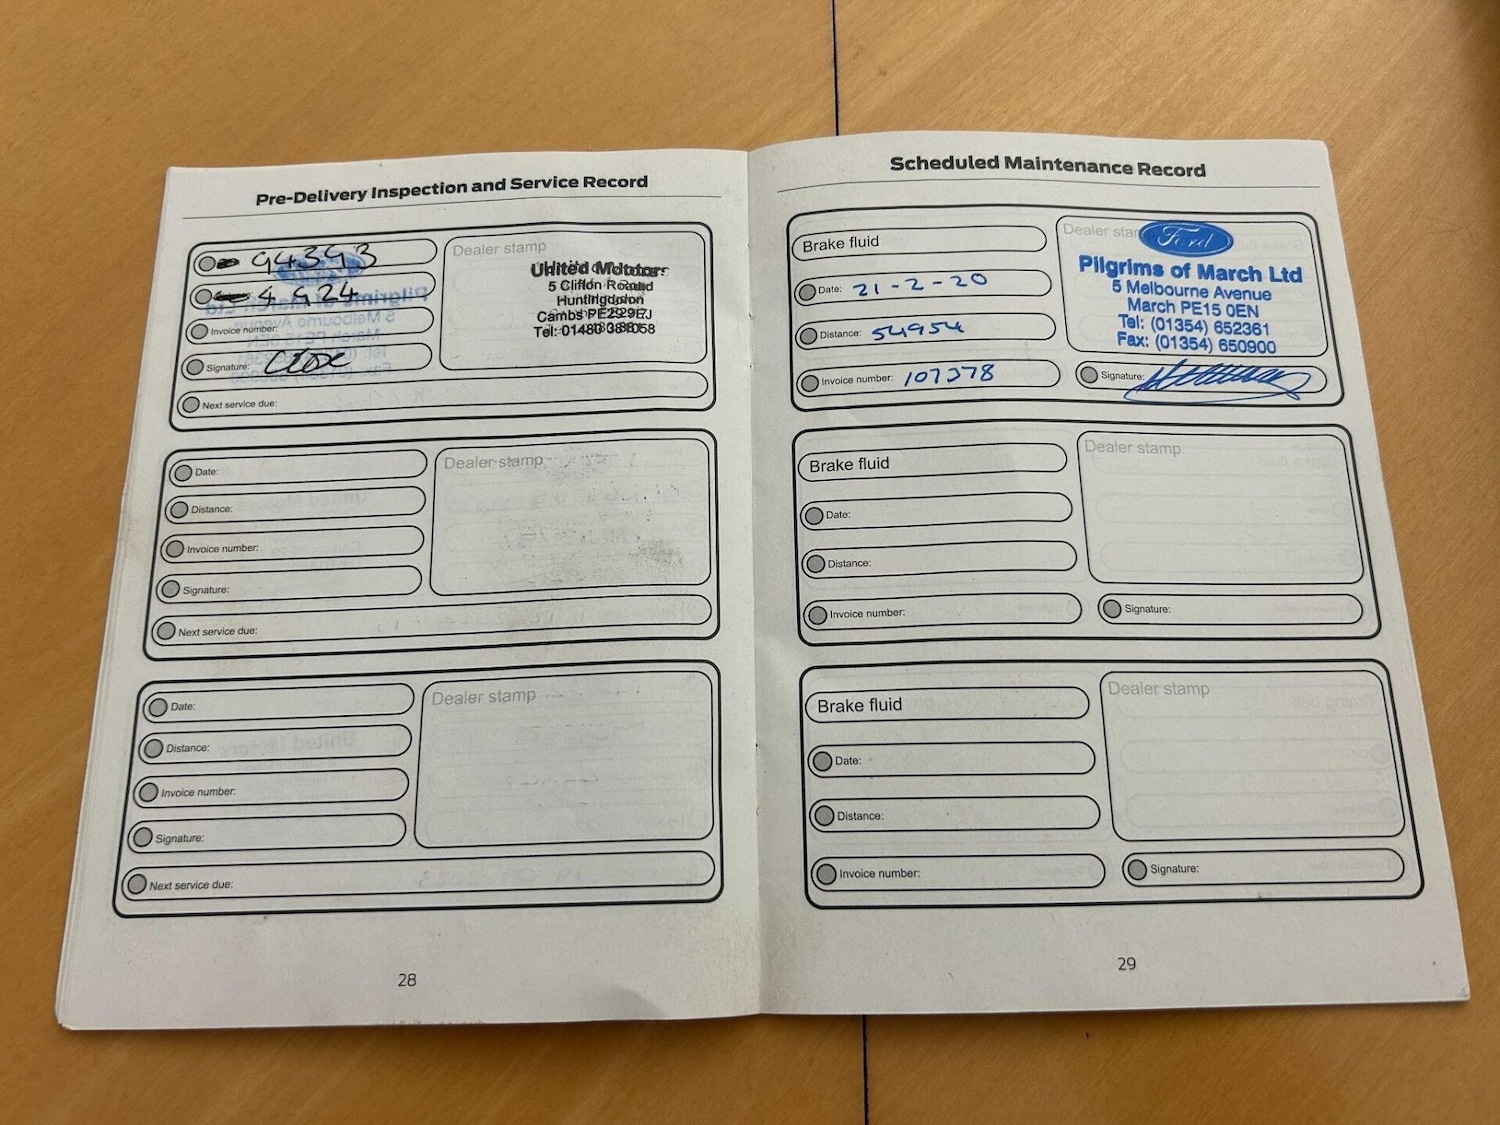 Pre-Delivery Inspection and Service Record
94393
4 924
Invoice number:
Signature:
Next service due:
Dealer stamp
United Motors
5 Clifton Road
Huntingdon
Cambs PE29 7EJ
Tel: 01480
Date:
Distance:
Invoice number:
Signature:
Next service due:
Dealer stamp
Date:
Distance:
Invoice number:
Signature:
Next service due:
Dealer stamp
28
Scheduled Maintenance Record
Brake fluid
Date: 21-2-20
Distance: 54954
Invoice number: 107378
Dealer stamp
Ford
Pilgrims of March Ltd
5 Melbourne Avenue
March PE15 0EN
Tel: (01354) 652361
Fax: (01354) 650900
Signature:
Brake fluid
Date:
Distance:
Invoice number:
Dealer stamp
Signature:
Brake fluid
Date:
Distance:
Invoice number:
Dealer stamp
Signature:
29